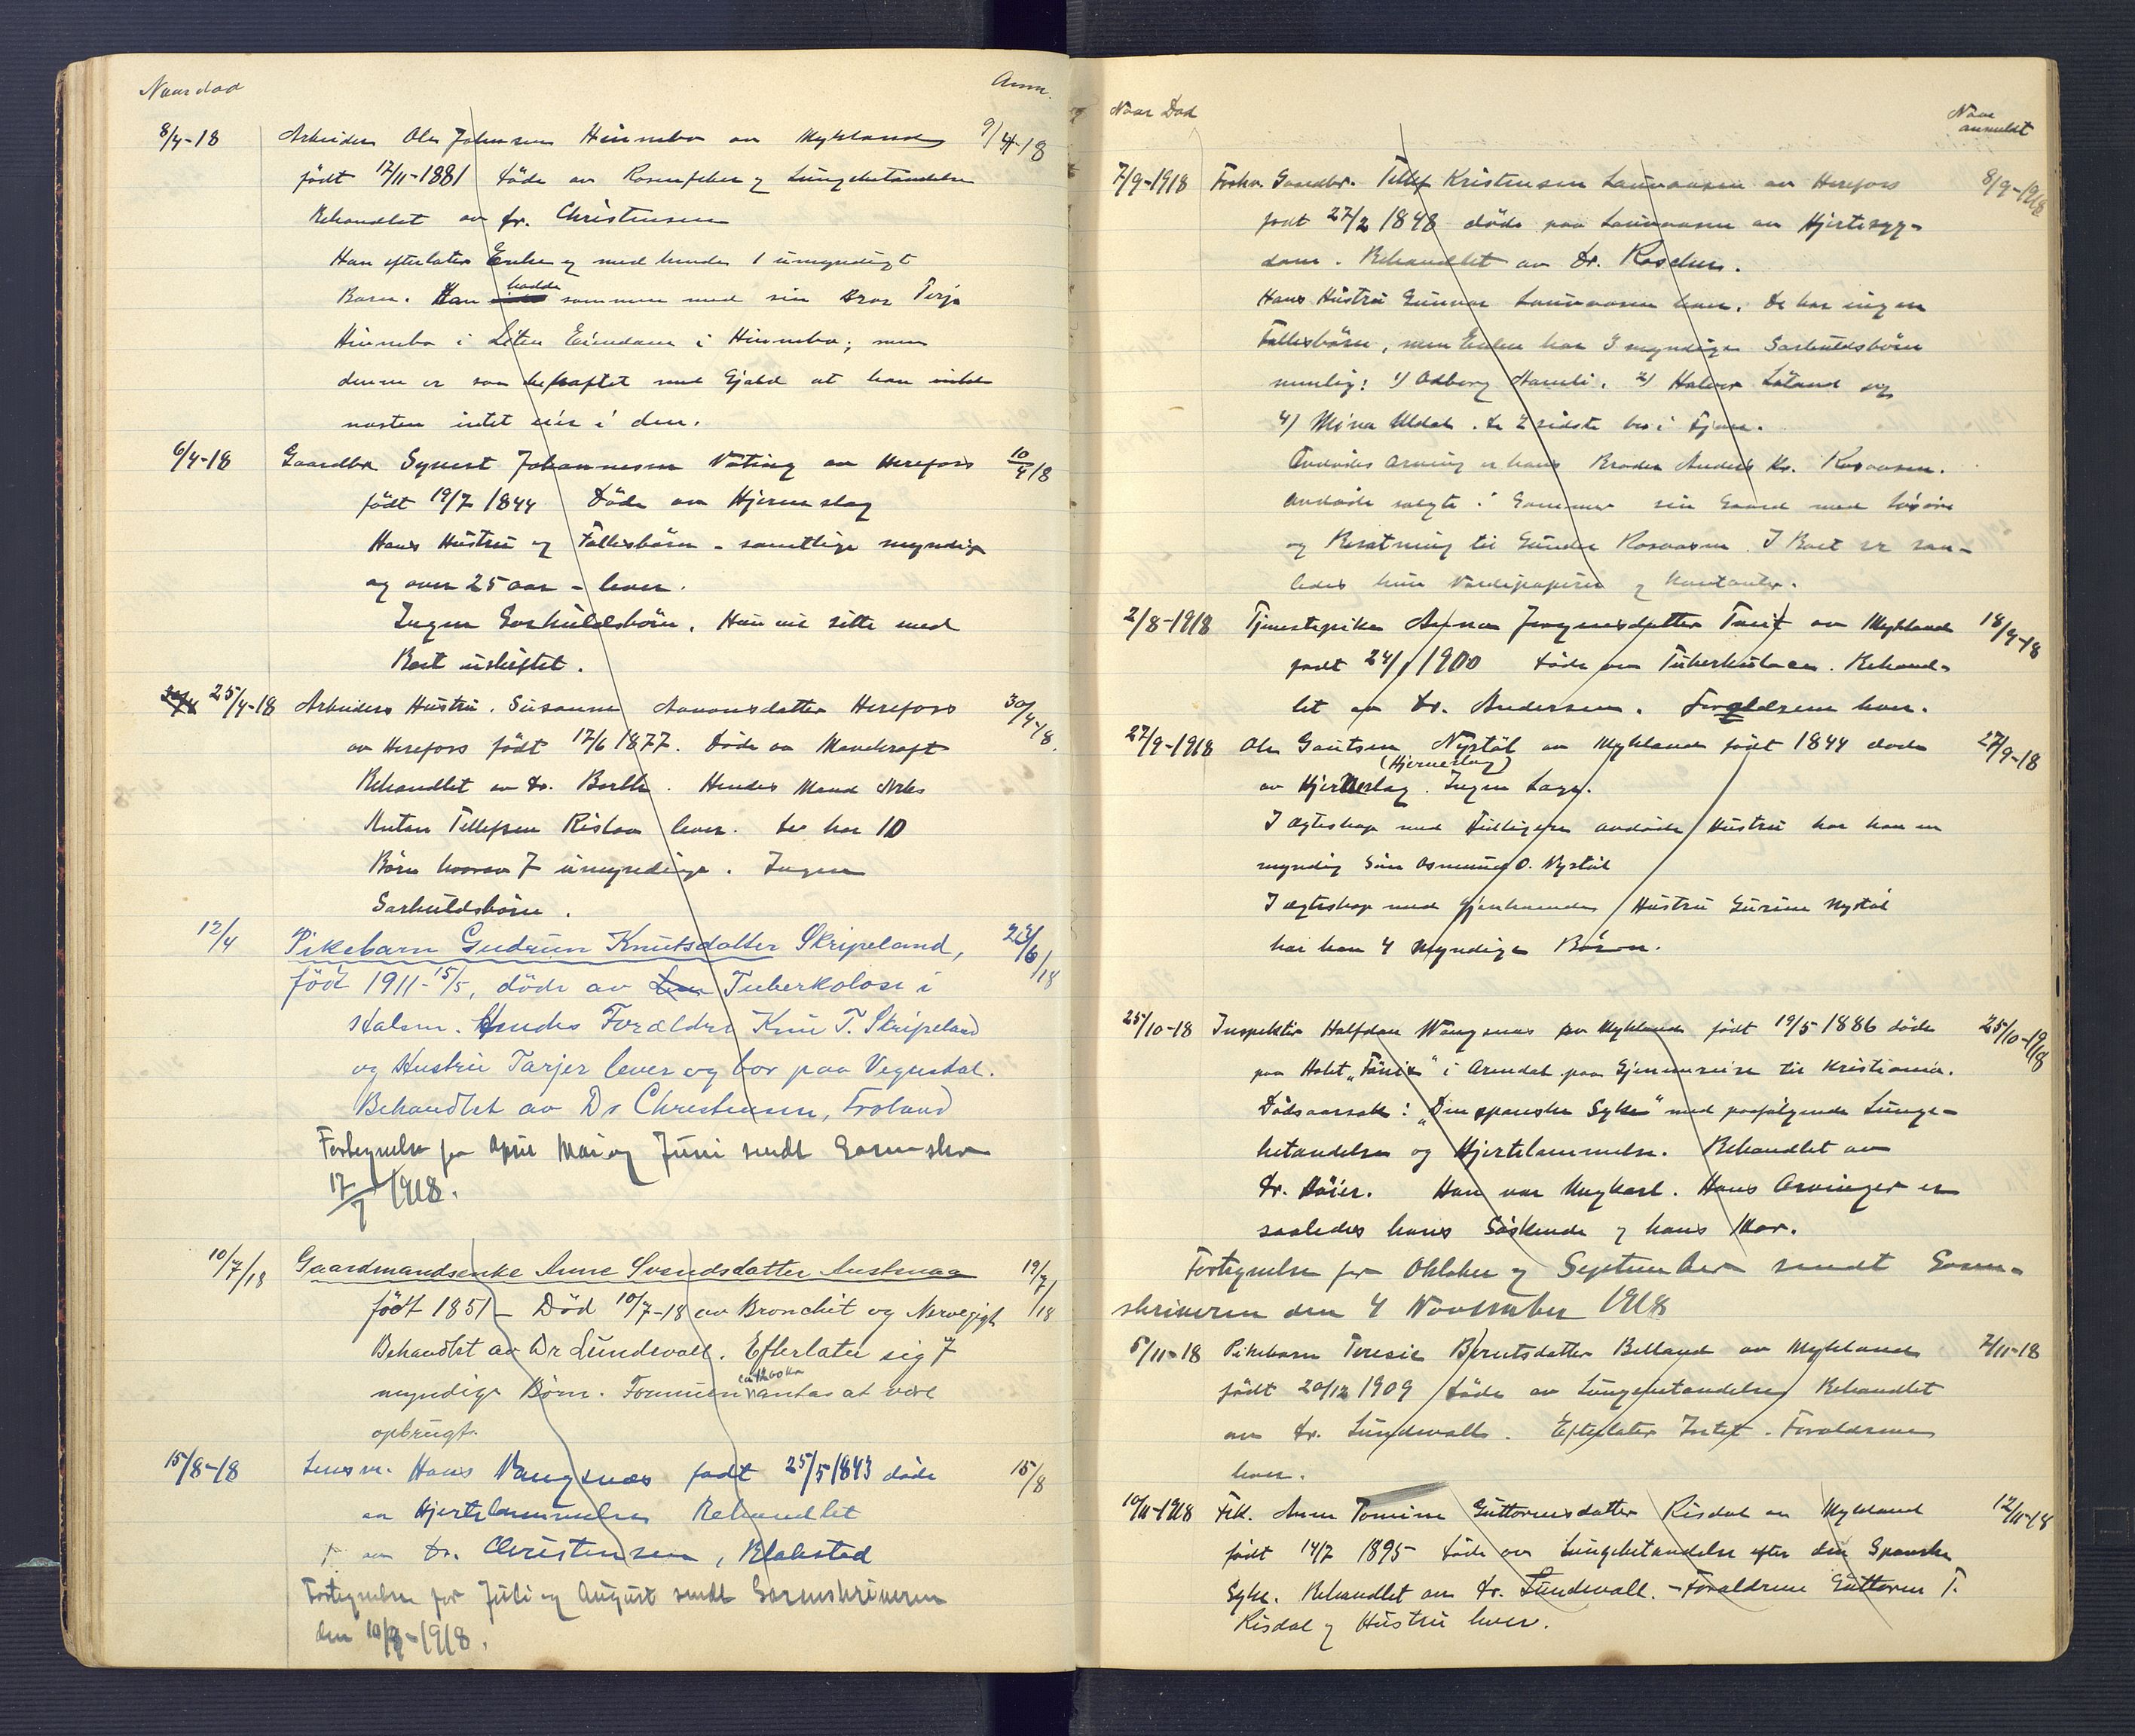 Naar død Anm.
8/4-18 Arbeider Ole Johnsen Hinnebo av Mykland 9/4-18
født 12/11-1881 døde av Rosenfeber og Lungebetændelse
Behandlet av Dr. Christensen
Han efterlater Enke og med hende 1 umyndigt
Barn. Han hadde sammen med sin Bror Terje
Hinnebo i Liten Eiendom i Hinnebo; men
denne er saa beheftet med Gjæld at han
næsten intet eier i den.
6/4-18 Gaardbr. Syvert Johannesen Væting av Herefoss 10/4 18
født 19/7 1844 Døde av Hjerneslag
Hans Hustru og Fællesbørn - samtlige myndige
og over 25 aar - lever.
Ingen Særkuldsbørn. Hun vil sitte med
Boet uskiftet.
25/4-18 Arbeiders Hustru. Susanne Aanonsdatter Herefoss 30/4-18.
av Herefoss født 12/6 1877. Døde av
Behandlet av Dr. Barth. Hendes Mand Nils
Anton Tellefsen Rislaa lever. De har 10
Børn hvorav 7 umyndige. Ingen
Særkuldsbørn.
12/4 Pikebarn Gudrun Knutsdatter Skripeland, 22/6/18
født 1911-15/5, døde av Tuberkolose i
Halsen. Hendes Forældre Knu T. Skripeland
og Hustru Tarjer lever og bor paa Vegusdal.
Behandlet av Dr Christensen, Froland
Fortegnelse for April Mai og Juni sendt Sorenskr
17/7 1918.
10/7/18 Gaardmandsenke Anne Svendsdatter Austenaa 19/7/18
født 1851 - Død 10/7-18 av Bronchit og Nervegigt
Behandlet av Dr Lundevall. Efterlater sig 7
myndige Børn. Formuen antas at være
opbrugt.
15/8-18 Lensm. Hans Vangsnæs født 25/5 1843 døde 15/8
av Hjertelammelse Behandlet
av Dr. Christensen, Blakstad
Fortegnelse for Juli og August sendt Sorenskriveren
den 10/9-1918.
Naar Død Naar anmeldt
7/9-1918 Forhv. Gaardbr. Tellef Kristensen Lauvaasen av Herefoss 8/9-1918
født 27/2 1848 døde paa Lauvaasen av Hjertesyg-
dom. Behandlet av Dr. Roscher.
Hans Hustru Gunvor Lauvaasen lever. De har ingen
Fællesbørn, men Enken har 3 myndige Særkuldsbørn
nemlig: 1) Odberg Hamli. 2) Halvor Løland og
4) Mina Uldal. De 2 sidste bor i Evje.
Avdødes Arving er hans Broder Anders Kr. Rosaasen.
Avdøde solgte i Sommer sin Gaard med Løsøre
og Besætning til Gunder Rosaasen. I Boet er saa-
ledes kun Værdipapirer og Kontanter.
2/8-1918 Tjenestepike Anna Jørgensdatter Tveit av Mykland 18/9-18
født 24/1 1900 døde av Tuberkulose. Behand-
let av Dr. Andersen. Forældrene lever.
27/9-1918 Ole Gautsen Nystøl av Mykland født 1844 døde 27/9-18
(Hjerneslag)
av Hjerneslag. Ingen Læge.
I ægteskap med tidligere avdøde Hustru har han en
myndig Søn Osmund O. Nystøl
I ægteskap med gjenlevende Hustru Gurine Nystøl
har han 4 myndige Børn.
25/10-18 Inspektør Halfdan Wangsnæs av Mykland født 19/5 1886 døde 25/10-1918
paa Hotel „Fønix" i Arendal paa Gjennemreise til Kristiania.
Dødsaarsak: „Den spanske Syke" med paafølgende Lunge-
betændelse og Hjertelammelse. Behandlet av
Dr. Høier. Han var Ungkarl. Hans Arvinger er
saaledes hans Søskende og hans Mor.
Fortegnelse for Oktober og September sendt Soren-
skriveren den 4 November 1918
5/11-18 Pikebarn Teresie Berntsdatter Belland av Mykland 7/11-18
født 20/12 1909 døde av Lungebetændelse Behandlet
av Dr. Lundevall. Efterlater Intet. Forældrene
lever.
10/11-1918 Frk. Anne Tomine Guttormsdatter Risdal av Mykland 12/11-18
født 14/7 1895 døde av Lungebetændelse efter den Spanske
Syke. Behandlet av Dr. Lundevall. - Forældrene Guttorm T.
Risdal og Hustru lever.